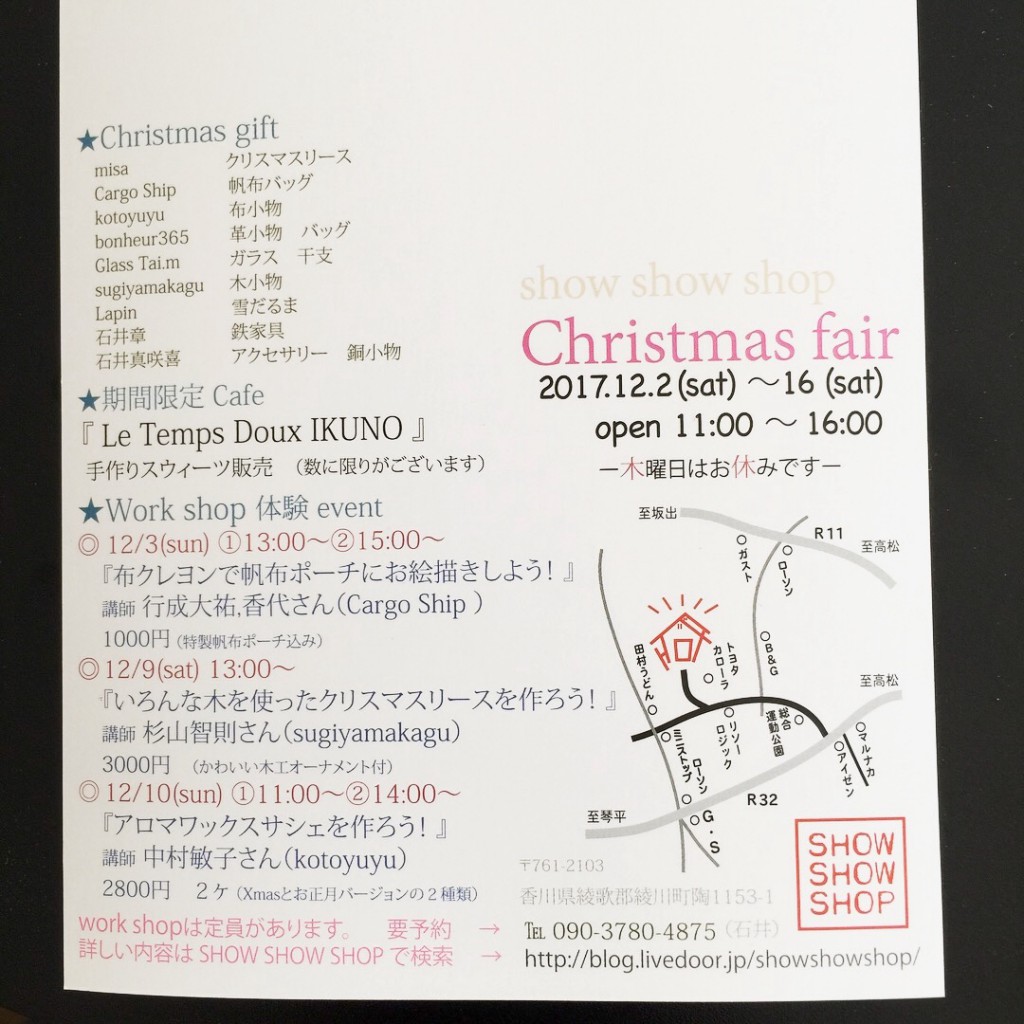 ★Christmas gift
misa クリスマスリース
Cargo Ship 帆布バッグ
kotoyuyu 布小物
bonheur365 革小物 バッグ
Glass Tai.m ガラス 干支
sugiyamakagu 木小物
Lapin 雪だるま
石井章 鉄家具
石井真咲喜 アクセサリー 銅小物
★期間限定 Cafe
『 Le Temps Doux IKUNO 』
手作りスウィーツ販売 （数に限りがございます）
★Work shop 体験 event
◎ 12/3(sun) ①13:00～②15:00～
『布クレヨンで帆布ポーチにお絵描きしよう！』
講師 行成大祐,香代さん（Cargo Ship ）
1000円（特製帆布ポーチ込み）
◎ 12/9(sat) 13:00～
『いろんな木を使ったクリスマスリースを作ろう！』
講師 杉山智則さん（sugiyamakagu）
3000円 （かわいい木工オーナメント付）
◎ 12/10(sun) ①11:00～②14:00～
『アロマワックスサシェを作ろう！』
講師 中村敏子さん（kotoyuyu）
2800円 2ケ（Xmasとお正月バージョンの２種類）
work shopは定員があります。 要予約 →
詳しい内容は SHOW SHOW SHOP で検索 →
show show shop
Christmas fair
2017.12.2 (sat) ～16 (sat)
open 11:00 ～ 16:00
ー木曜日はお休みですー
至坂出
R11
至高松
ガスト
ローソン
田村うどん
トヨタ
カローラ
B&G
至高松
ミニストップ
リソー
ロジック
総合
運動公園
マルナカ
アイゼン
ローソン
G・S
R32
至琴平
SHOW
SHOW
SHOP
〒761-2103
香川県綾歌郡綾川町陶1153-1
℡ 090-3780-4875（石井）
http://blog.livedoor.jp/showshowshop/